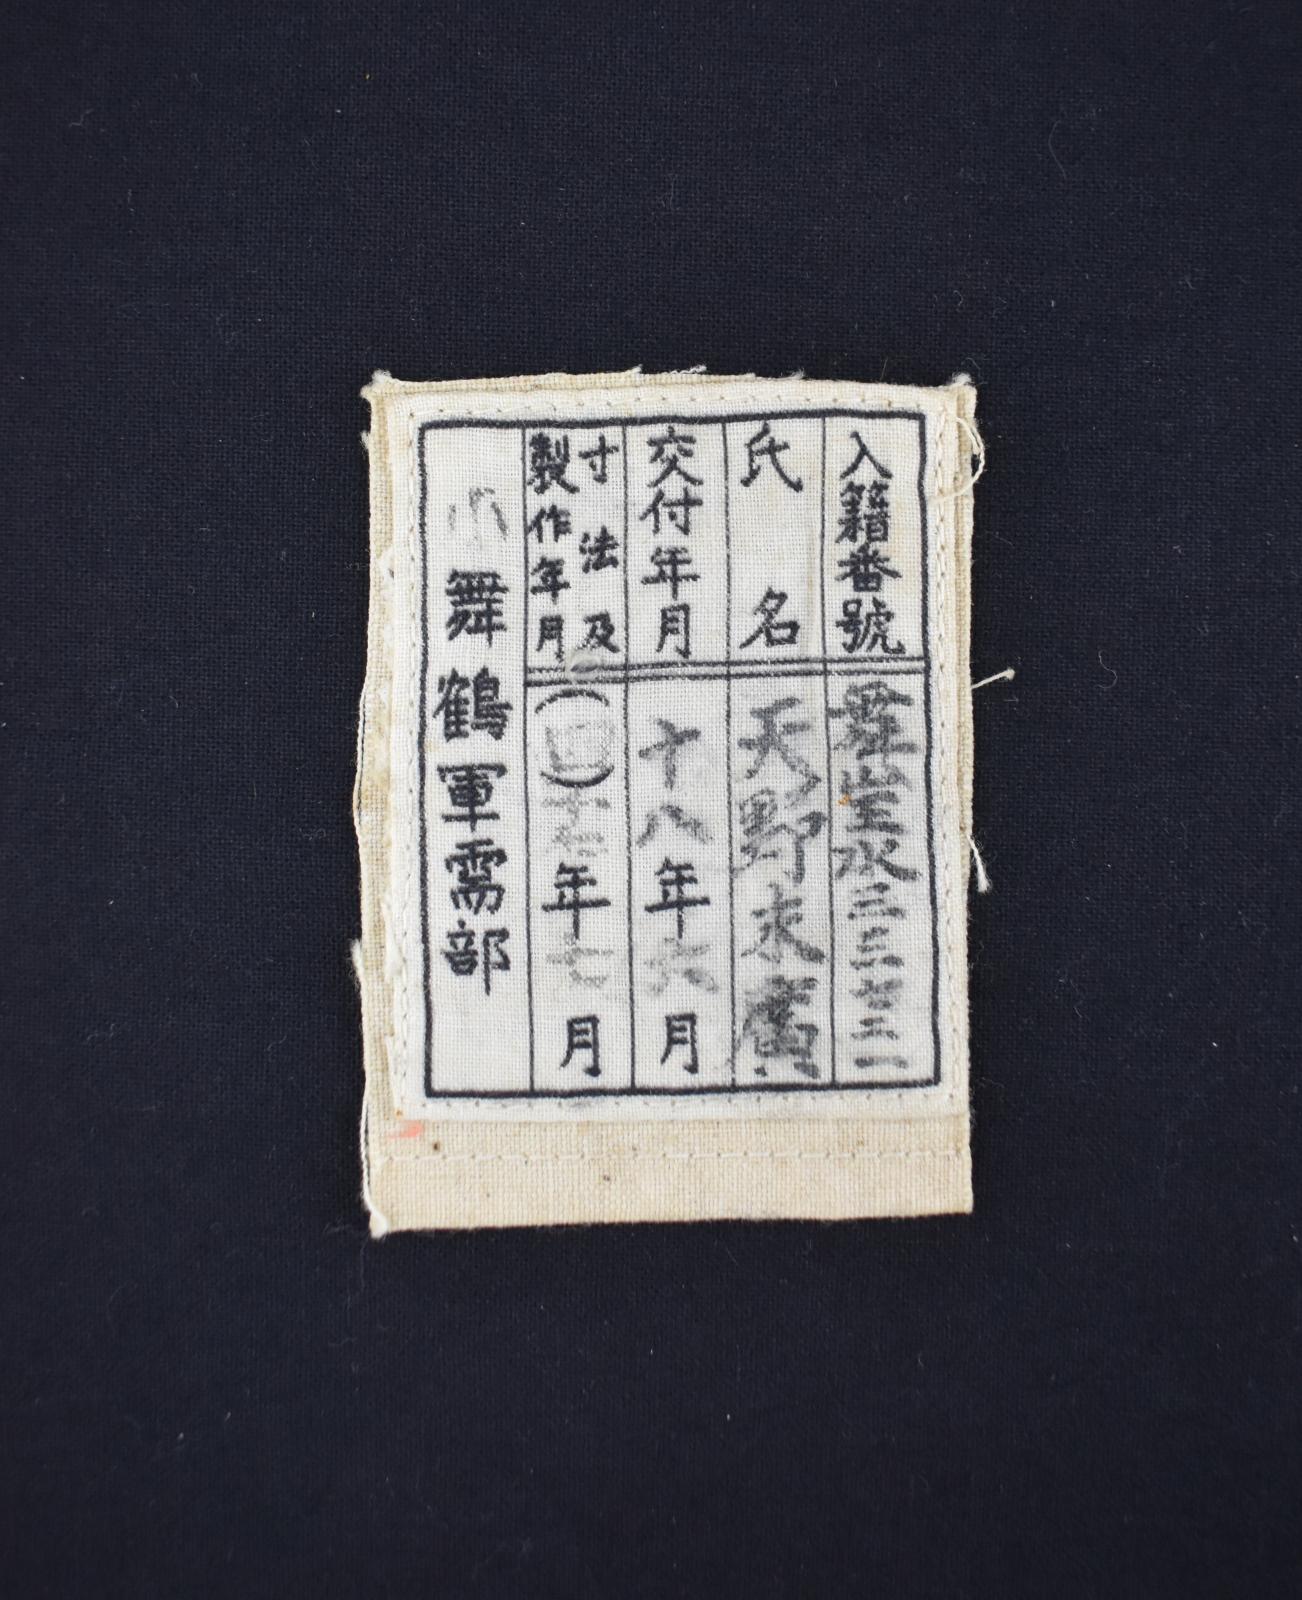 入籍番號 舞 水三三
氏名 天野末廣
交付年月 十八年六月
寸法及
製作年月 (四) 年 月
舞鶴軍需部